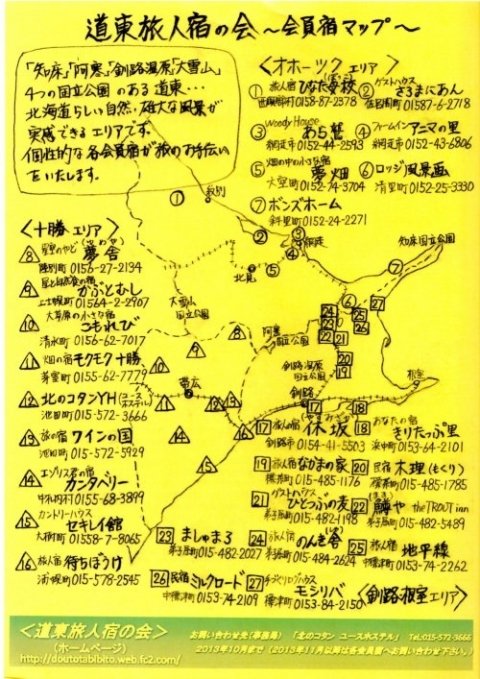 道東旅人宿の会～会員宿マップ～
「知床」「阿寒」「釧路湿原」「大雪山」
4つの国立公園のある道東…
北海道らしい自然、雄大な風景が
実感できるエリアです。
個性的な各会員宿が旅のお手伝い
をいたします。
<オホーツクエリア>
① 旅人宿 ひなた
西興部村 0158-87-2378
② ゲストハウス さろまにあん
佐呂間町 01587-6-2718
③ Woody House あら鷲
網走市 0152-44-2593
④ ファームイン アニマの里
網走市 0152-43-6806
⑤ 畑の中の小さな宿 夢畑
大空町 0152-74-3704
⑥ ロッジ風景画
清里町 0152-25-3330
⑦ ボンズホーム
斜里町 0152-24-2271
<十勝エリア>
8 星空のやど 夢舎
陸別町 0156-27-2134
9 かぶとむし
上士幌町 01564-2-2907
10 大草原の小さな宿 こもれび
清水町 0156-62-7017
11 畑の宿 モクモク十勝
芽室町 0155-62-7779
12 北のコタンYH(ユースホステル)
池田町 015-572-3666
13 旅の宿 ワインの国
池田町 015-572-5929
14 エゾリス君の宿 カンタベリー
中札内村 0155-68-3899
15 カントリーハウス セキレイ館
大樹町 01558-7-8065
16 旅人宿 待ちぼうけ
浦幌町 015-578-2545
紋別
①
②
③
④
網走
⑤
北見
⑥
⑦
知床国立公園
大雪山
国立公園
阿寒
国立公園
釧路湿原
国立公園
釧路
根室
帯広
8
9
10
11
12
13
14
15
16
17
18
19
20
21
22
23
24
25
26
27
17 旅人の宿 休坂
釧路市 0154-41-5503
18 あなたの宿 きりたっぷ里
浜中町 0153-64-2101
19 旅人宿 なかまの家
標茶町 015-485-1176
20 民宿 木理(もくり)
標茶町 015-485-1785
21 ゲストハウス ひとつぶの麦
弟子屈町 015-482-1198
22 鱒や the TROUT inn
弟子屈町 015-482-5489
23 ましゅまろ
弟子屈町 015-482-2027
24 旅人宿 のんき舎
弟子屈町 015-484-2624
25 旅人宿 地平線
中標津町 0153-74-2262
26 民宿 ミルクロード
中標津町 0153-74-2109
27 手づくりログハウス モシリバ
標津町 0153-84-2150
<釧路・根室エリア>
<道東旅人宿の会>
(ホームページ)
http://doutotabibito.web.fc2.com/
お問い合わせ先(事務局) 「北のコタン ユースホステル」 Tel:015-572-3666
2013年10月まで(2013年11月以降は各会員宿へお問い合わせ下さい。)